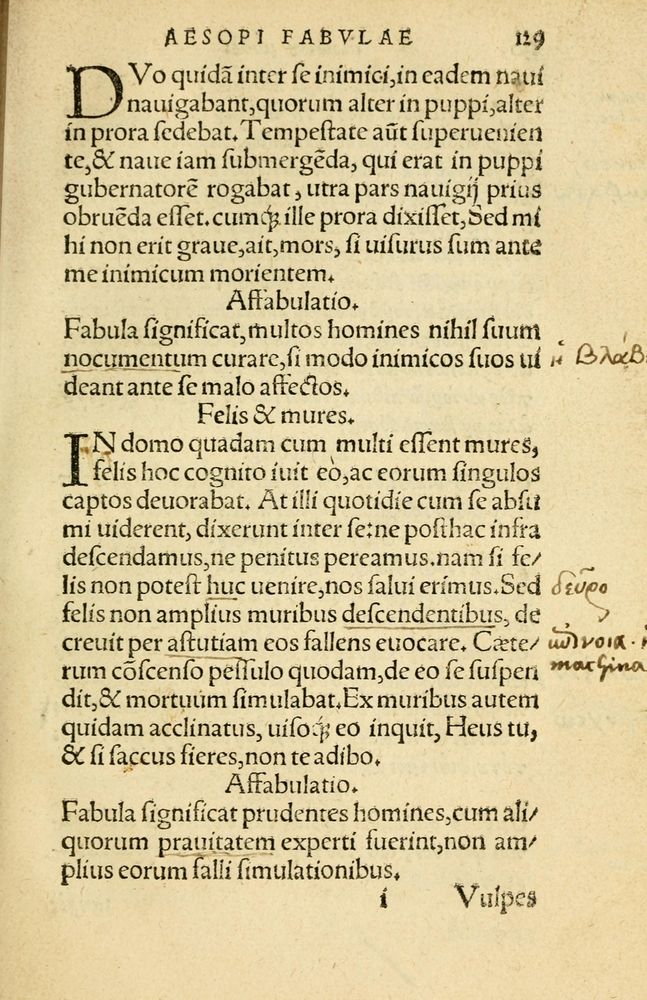 AESOPI FABVLAE 129
DVo quidã inter se inimici,in eadem naui
nauigabant,quorum alter in puppi,alter
in prora sedebat. Tempestate aũt superuenien
te,& naue iam submergẽda, qui erat in puppi
gubernatorẽ rogabat, utra pars nauigij prius
obruẽda esset. cumq́; ille prora dixisset, Sed mi
hi non erit graue,ait,mors, si uisurus sum ante
me inimicum morientem.
Affabulatio.
Fabula significat,multos homines nihil suum
nocumentum curare,si modo inimicos suos ui
deant ante se malo affectos.
Felis & mures.
IN domo quadam cum multi essent mures,
felis hoc cognito iuit eò,ac eorum singulos
captos deuorabat. At illi quotidie cum se absu
mi uiderent, dixerunt inter se:ne posthac infra
descendamus,ne penitus pereamus.nam si fe/
lis non potest huc uenire,nos salui erimus. Sed
δεῦρο
felis non amplius muribus descendentibus, de
creuit per astutiam eos fallens euocare. Cæte/
machina
rum cõscenso pessulo quodam,de eo se suspen
dit,& mortuum simulabat. Ex muribus autem
quidam acclinatus, uisoq́; eo inquit, Heus tu,
& si saccus fieres,non te adibo.
Affabulatio.
Fabula significat prudentes homines,cum ali/
quorum prauitatem experti fuerint,non am/
plius eorum falli simulationibus.
i Vulpes